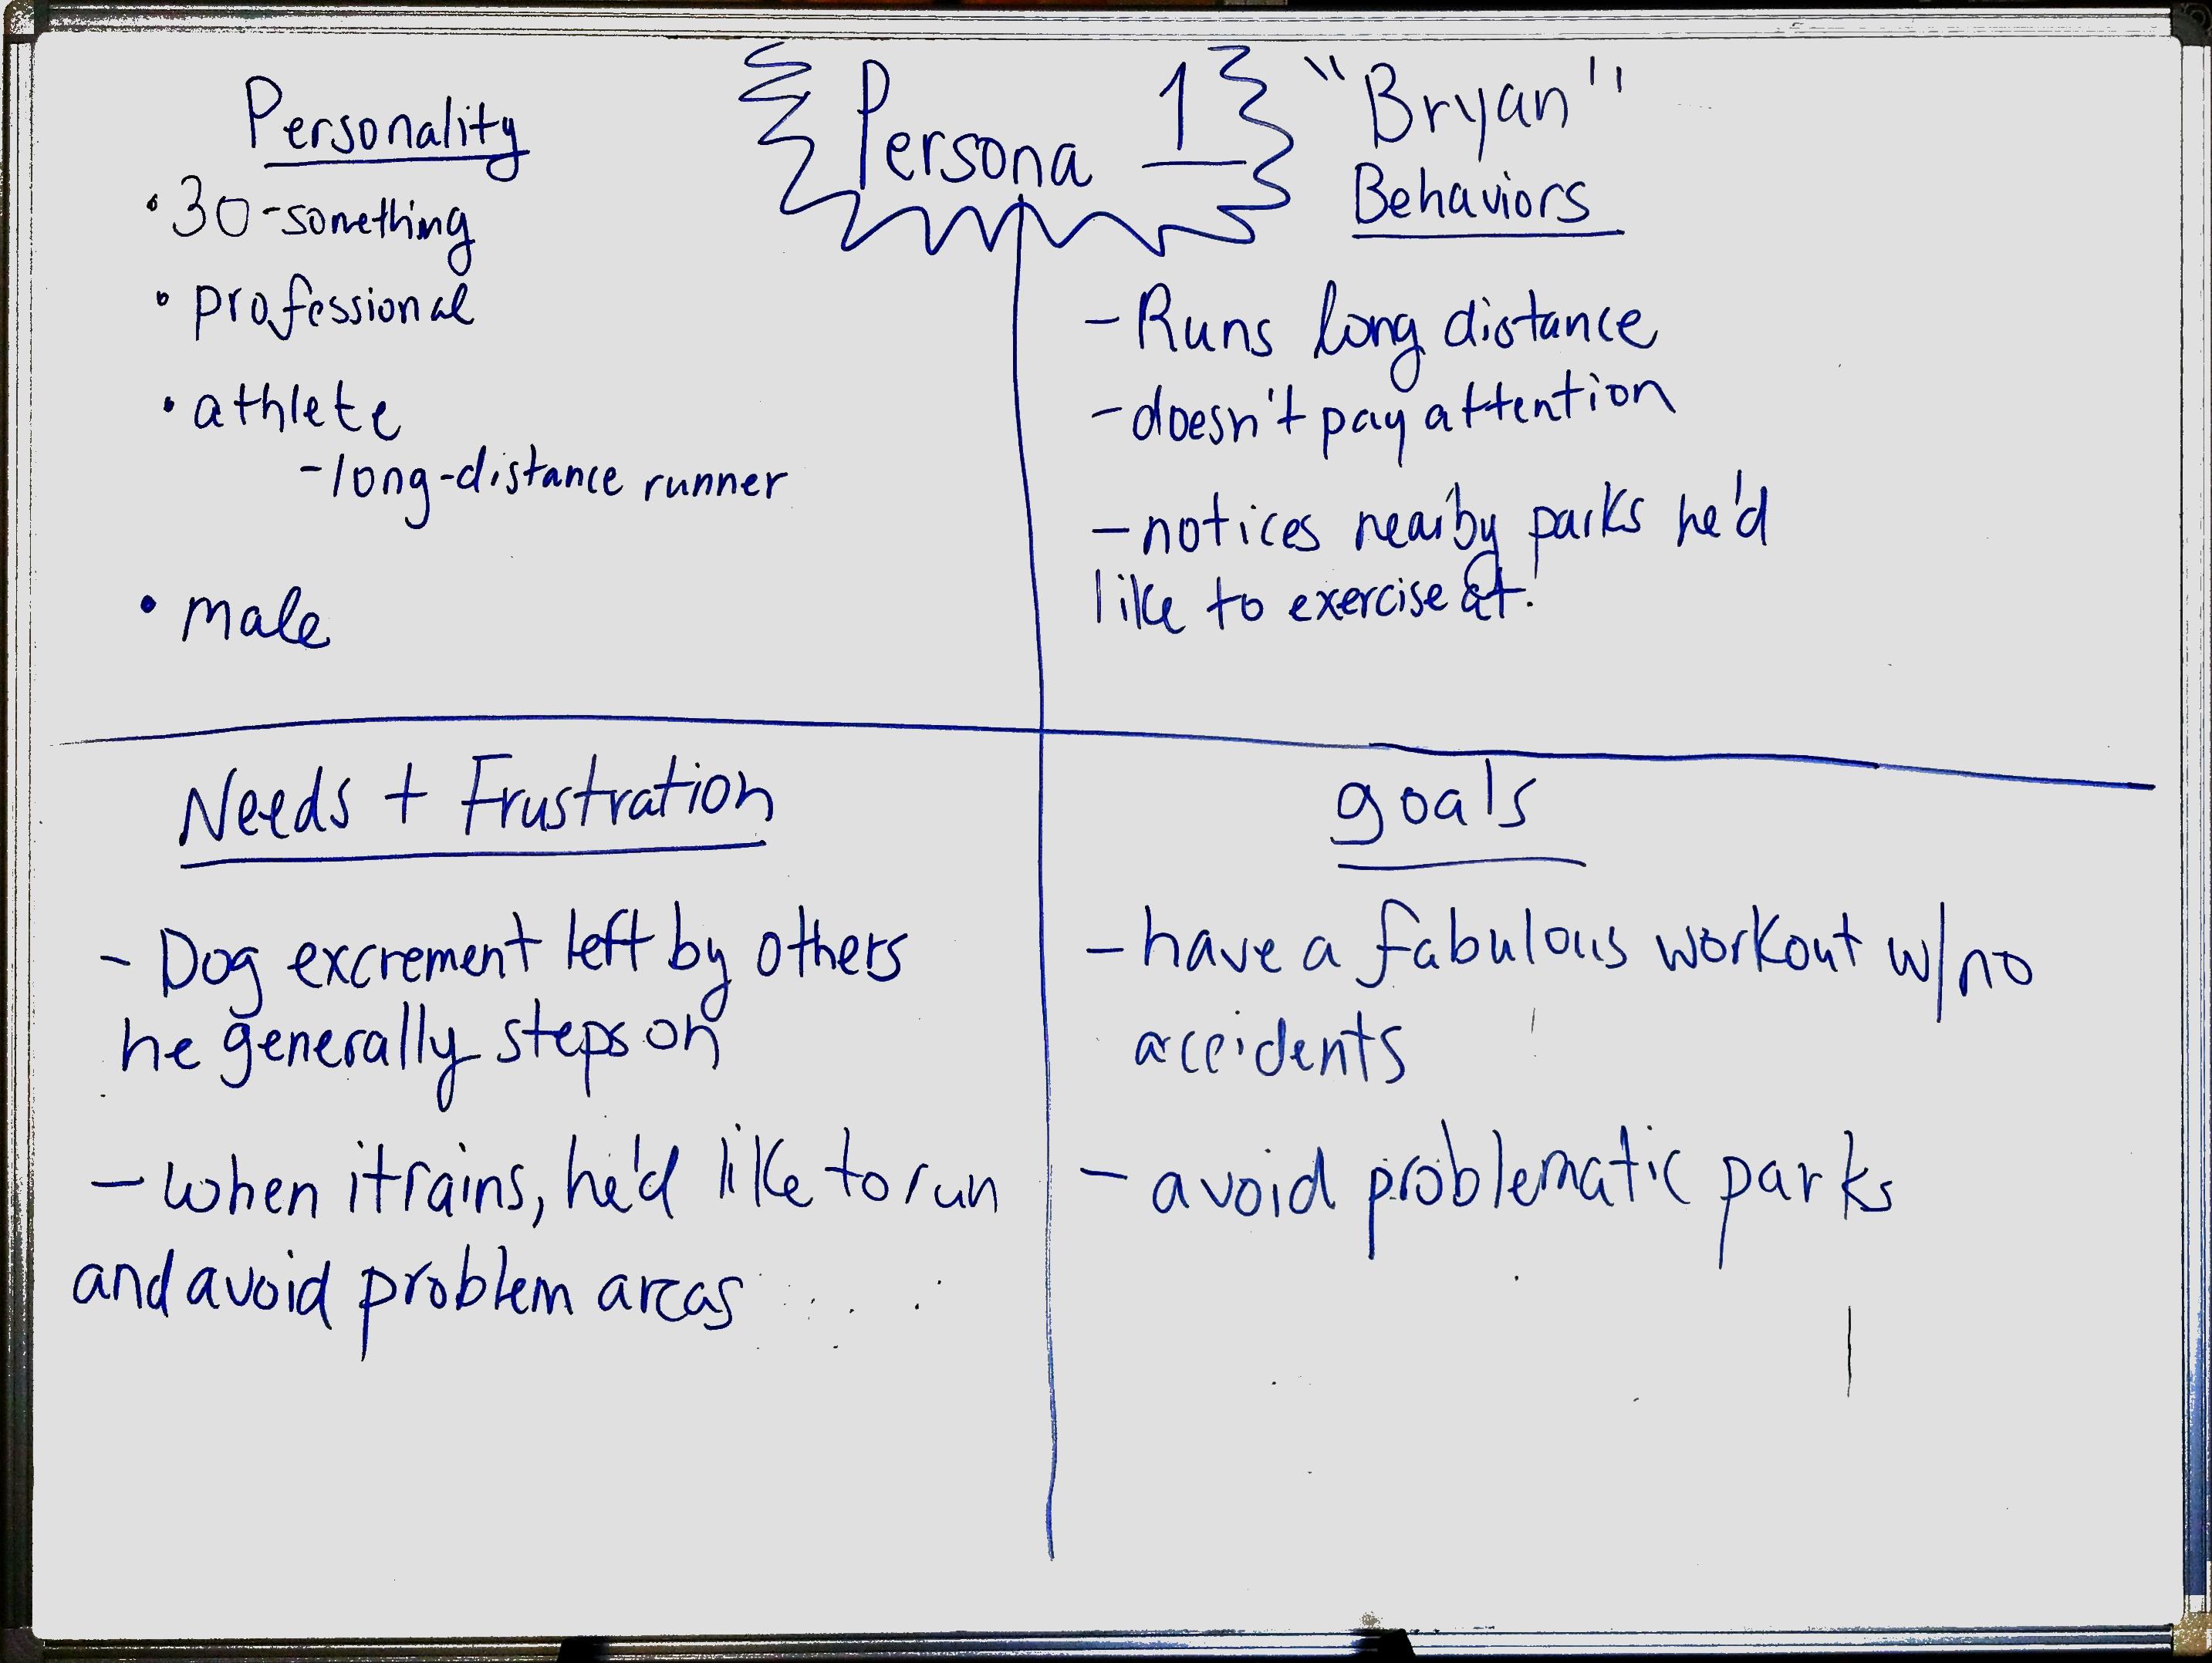 Persona 1 "Bryan"
Personality
• 30-something
• professional
• athlete
-long-distance runner
• male
Behaviors
- Runs long distance
- doesn't pay attention
- notices nearby parks he'd
like to exercise at.
Needs + Frustration
- Dog excrement left by others
he generally steps on
- when it rains, he'd like to run
and avoid problem areas
goals
- have a fabulous workout w/no
accidents
- avoid problematic parks